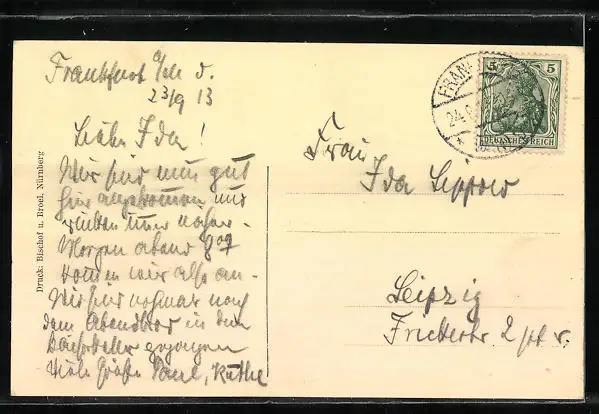 Frankfurt a/M d.
23/9 13
Liebe Ida!
Wir sind nun gut
hier angekommen und
Morgen Abend 8 07
kommen wir also an.
Wir sind nochmal nach
dem Abendbrot in den
gezogen
Viele Grüße Paul, Käthe
Druck: Bischof u. Broel, Nürnberg
FRANKFURT
24.
5 5
DEUTSCHES REICH
Frau
Ida Seppow
Leipzig
2 pt. r.